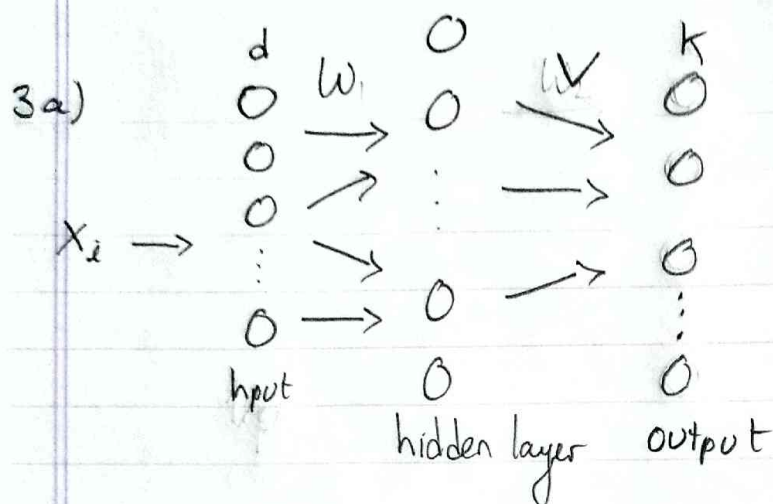 3a)
d
W
V
k
Xi →
input
hidden layer
output